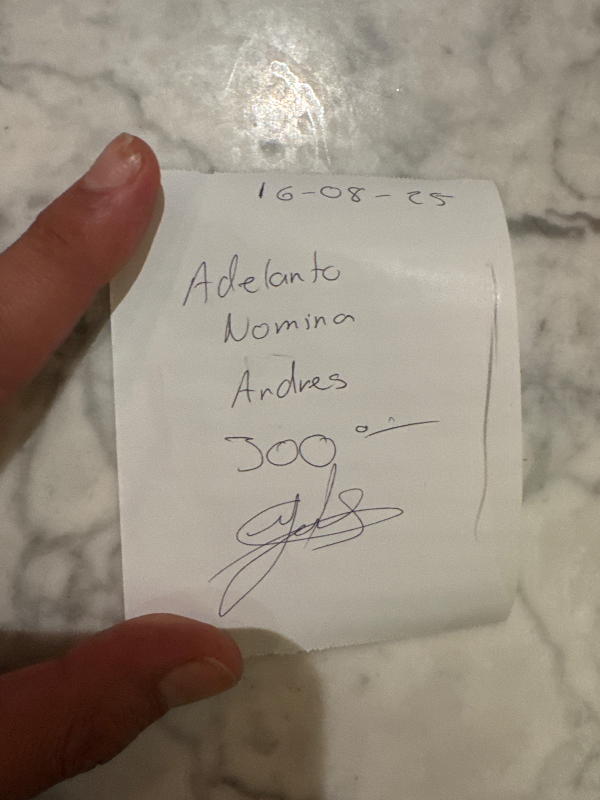 16-08-25
Adelanto
Nomina
Andres
300